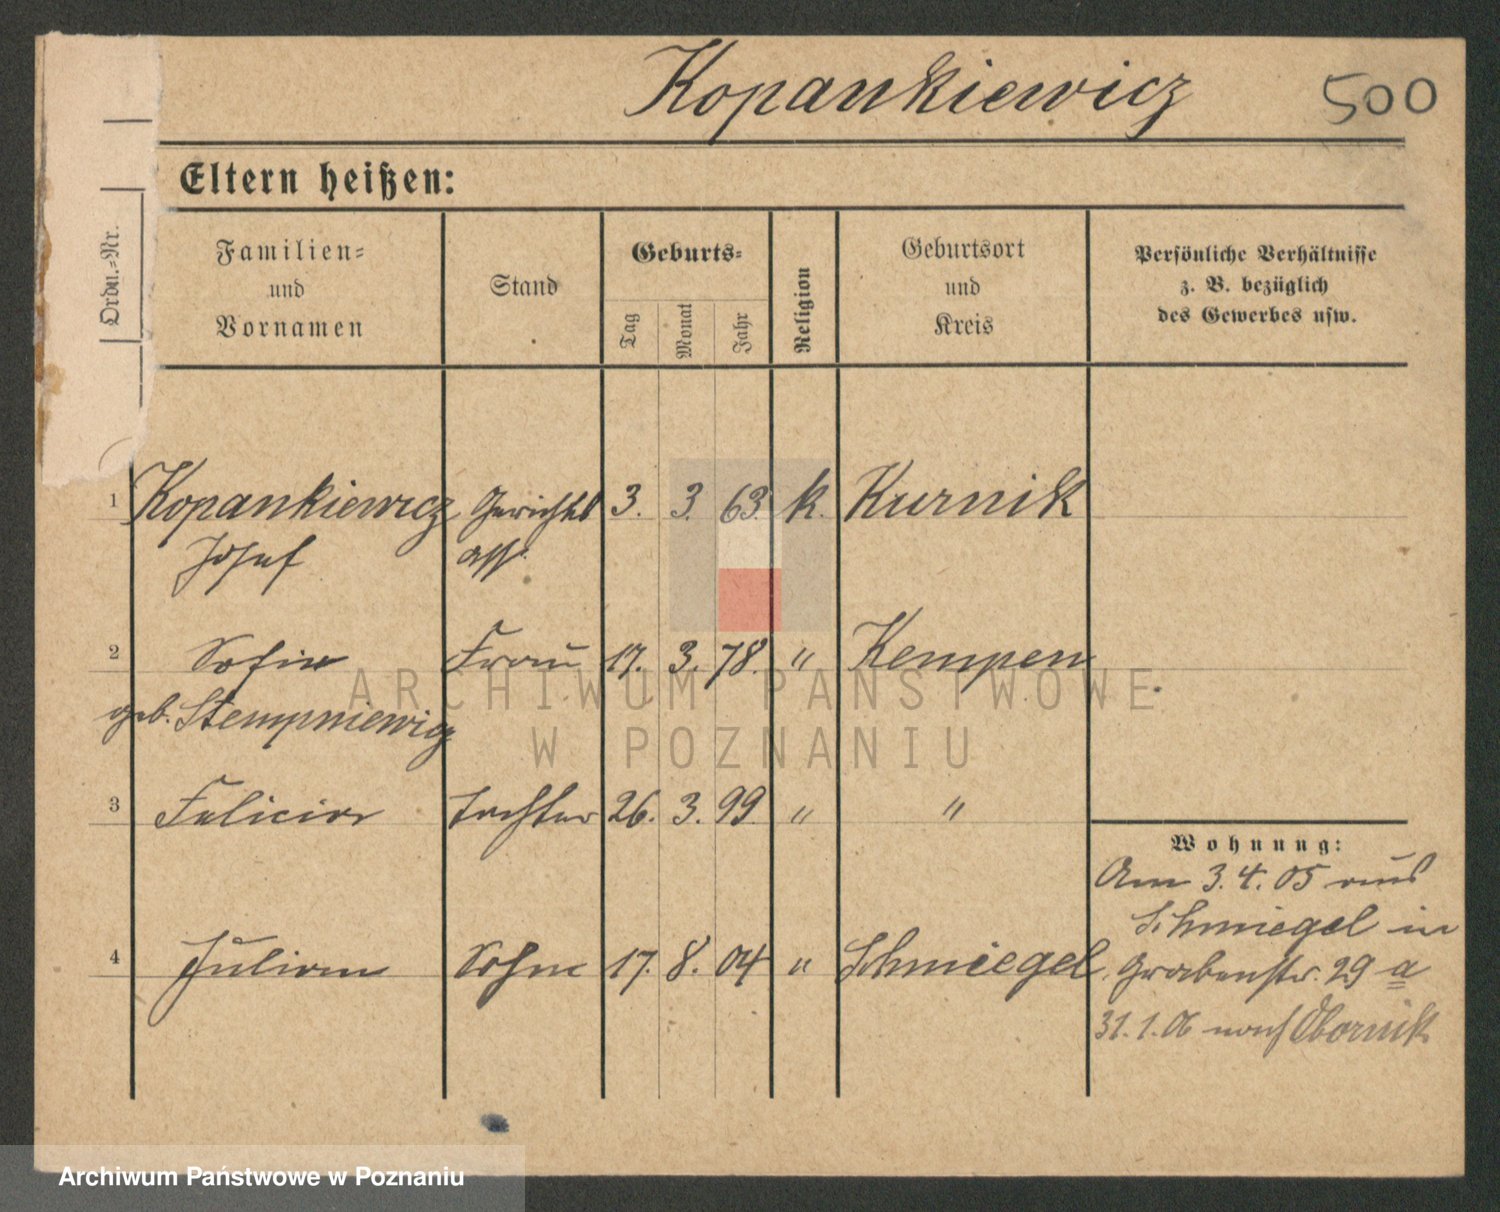 Kopankiewicz 500
Eltern heißen:
Ordn.-Nr.
Familien-
und
Vornamen
Stand
Geburts-
Tag
Monat
Jahr
Religion
Geburtsort
und
Kreis
Persönliche Verhältnisse
z. B. bezüglich
des Gewerbes usw.
1 Kopankiewicz Gerichts 3. 3. 63. k. Kurnik
Josef ass.
2 Sofie Frau 17. 3. 78. " Kempen
geb. Stempniewicz
3 Felicia Tochter 26. 3. 99. " "
Wohnung:
Am 3.4.05 aus
Schmiegel in
4 Julian Sohn 17. 8. 04 " Schmiegel Grabenstr. 29 a
31.1.06 nach Obornik
ARCHIWUM PAŃSTWOWE
W POZNANIU
Archiwum Państwowe w Poznaniu